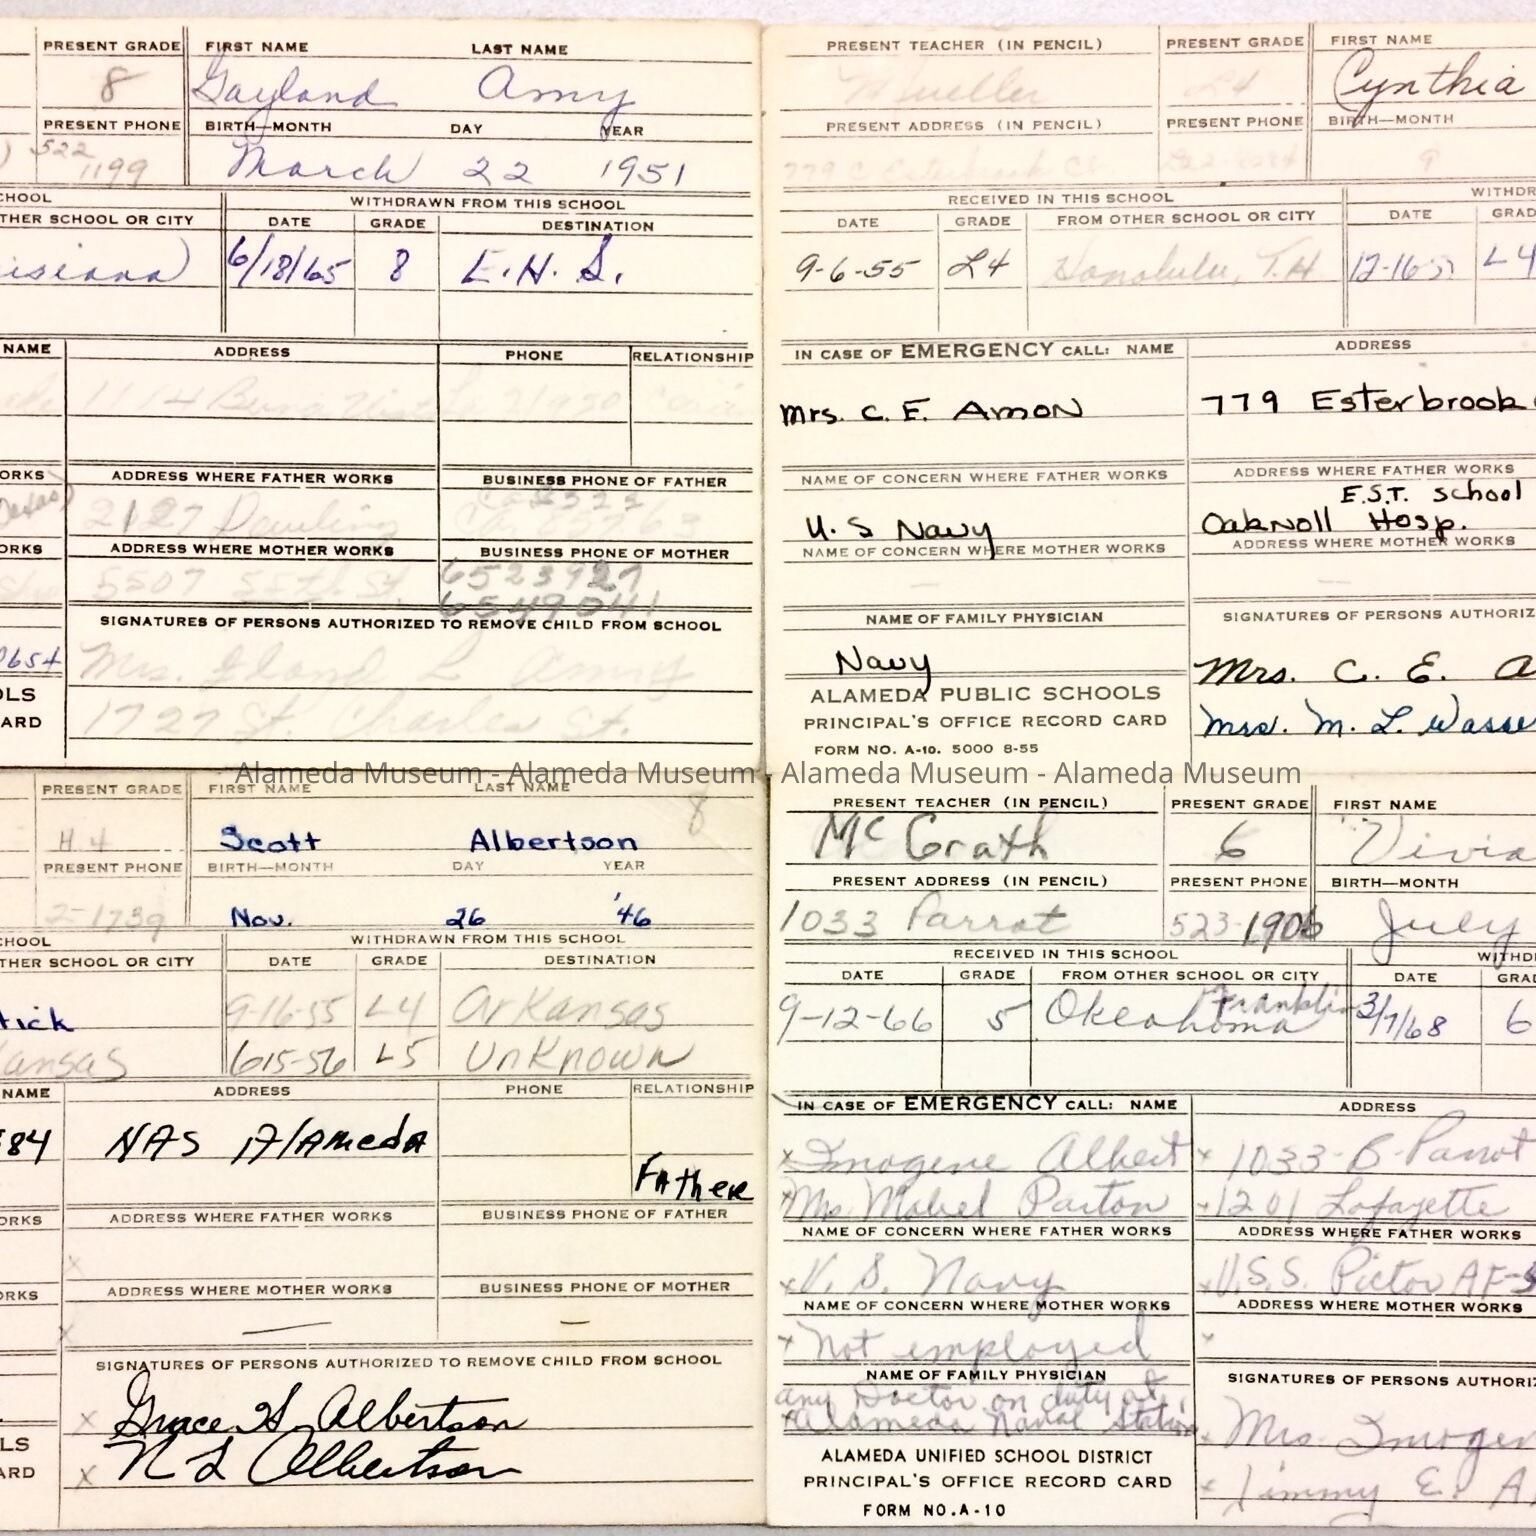 PRESENT GRADE FIRST NAME LAST NAME
8 Gayland Amy
PRESENT PHONE BIRTH—MONTH DAY YEAR
522
1199 March 22 1951
CHOOL WITHDRAWN FROM THIS SCHOOL
THER SCHOOL OR CITY DATE GRADE DESTINATION
isiana) 6/18/65 8 E.H.S.
NAME ADDRESS PHONE RELATIONSHIP
ORKS ADDRESS WHERE FATHER WORKS BUSINESS PHONE OF FATHER
2127
ORKS ADDRESS WHERE MOTHER WORKS BUSINESS PHONE OF MOTHER
5507 6523927
6549041
SIGNATURES OF PERSONS AUTHORIZED TO REMOVE CHILD FROM SCHOOL
0654 Mrs. L Amy
OLS
ARD 1727 St. Charles St.
PRESENT TEACHER (IN PENCIL) PRESENT GRADE FIRST NAME
Mueller L4 Cynthia
PRESENT ADDRESS (IN PENCIL) PRESENT PHONE BIRTH—MONTH
779 C Esterbrook 9
RECEIVED IN THIS SCHOOL WITHDR
DATE GRADE FROM OTHER SCHOOL OR CITY DATE GRAD
9-6-55 L4 Honolulu, T.H. L4
IN CASE OF EMERGENCY CALL: NAME ADDRESS
Mrs. C. E. Amon 779 Esterbrook
NAME OF CONCERN WHERE FATHER WORKS ADDRESS WHERE FATHER WORKS
E.S.T. School
U.S Navy Oaknoll Hosp.
NAME OF CONCERN WHERE MOTHER WORKS ADDRESS WHERE MOTHER WORKS
NAME OF FAMILY PHYSICIAN SIGNATURES OF PERSONS AUTHORIZ
Navy Mrs. C. E. A
ALAMEDA PUBLIC SCHOOLS
PRINCIPAL'S OFFICE RECORD CARD Mrs. M. L. Wasse
FORM NO. A-10. 5000 8-55
Alameda Museum - Alameda Museum - Alameda Museum - Alameda Museum
PRESENT GRADE FIRST NAME LAST NAME
8
H4 Scott Albertson
PRESENT PHONE BIRTH—MONTH DAY YEAR
2-1739 Nov. 26 '46
CHOOL WITHDRAWN FROM THIS SCHOOL
THER SCHOOL OR CITY DATE GRADE DESTINATION
tick 9-16-55 L4 Arkansas
ansas 615-56 L5 Unknown
NAME ADDRESS PHONE RELATIONSHIP
84 NAS Alameda
Father
ORKS ADDRESS WHERE FATHER WORKS BUSINESS PHONE OF FATHER
x
ORKS ADDRESS WHERE MOTHER WORKS BUSINESS PHONE OF MOTHER
x — —
SIGNATURES OF PERSONS AUTHORIZED TO REMOVE CHILD FROM SCHOOL
x Grace H Albertson
LS
ARD x N L Albertson
PRESENT TEACHER (IN PENCIL) PRESENT GRADE FIRST NAME
McGrath 6 Vivia
PRESENT ADDRESS (IN PENCIL) PRESENT PHONE BIRTH—MONTH
1033 Parrot 523-1906 July
RECEIVED IN THIS SCHOOL WITHD
DATE GRADE FROM OTHER SCHOOL OR CITY DATE GRAD
Franklin
9-12-66 5 Okeahoma 3/7/68 6
IN CASE OF EMERGENCY CALL: NAME ADDRESS
x Imogene Albert x 1033-B-Parrot
x Mrs Mabel Parton x 1201 Lafayette
NAME OF CONCERN WHERE FATHER WORKS ADDRESS WHERE FATHER WORKS
x U. S. Navy x U.S.S. Pictor AF-5
NAME OF CONCERN WHERE MOTHER WORKS ADDRESS WHERE MOTHER WORKS
x Not employed x
NAME OF FAMILY PHYSICIAN SIGNATURES OF PERSONS AUTHORIZ
any Doctor on duty at
x Alameda Naval Station x Mrs. Imogen
ALAMEDA UNIFIED SCHOOL DISTRICT
PRINCIPAL'S OFFICE RECORD CARD x Jimmy E. A
FORM NO.A-10